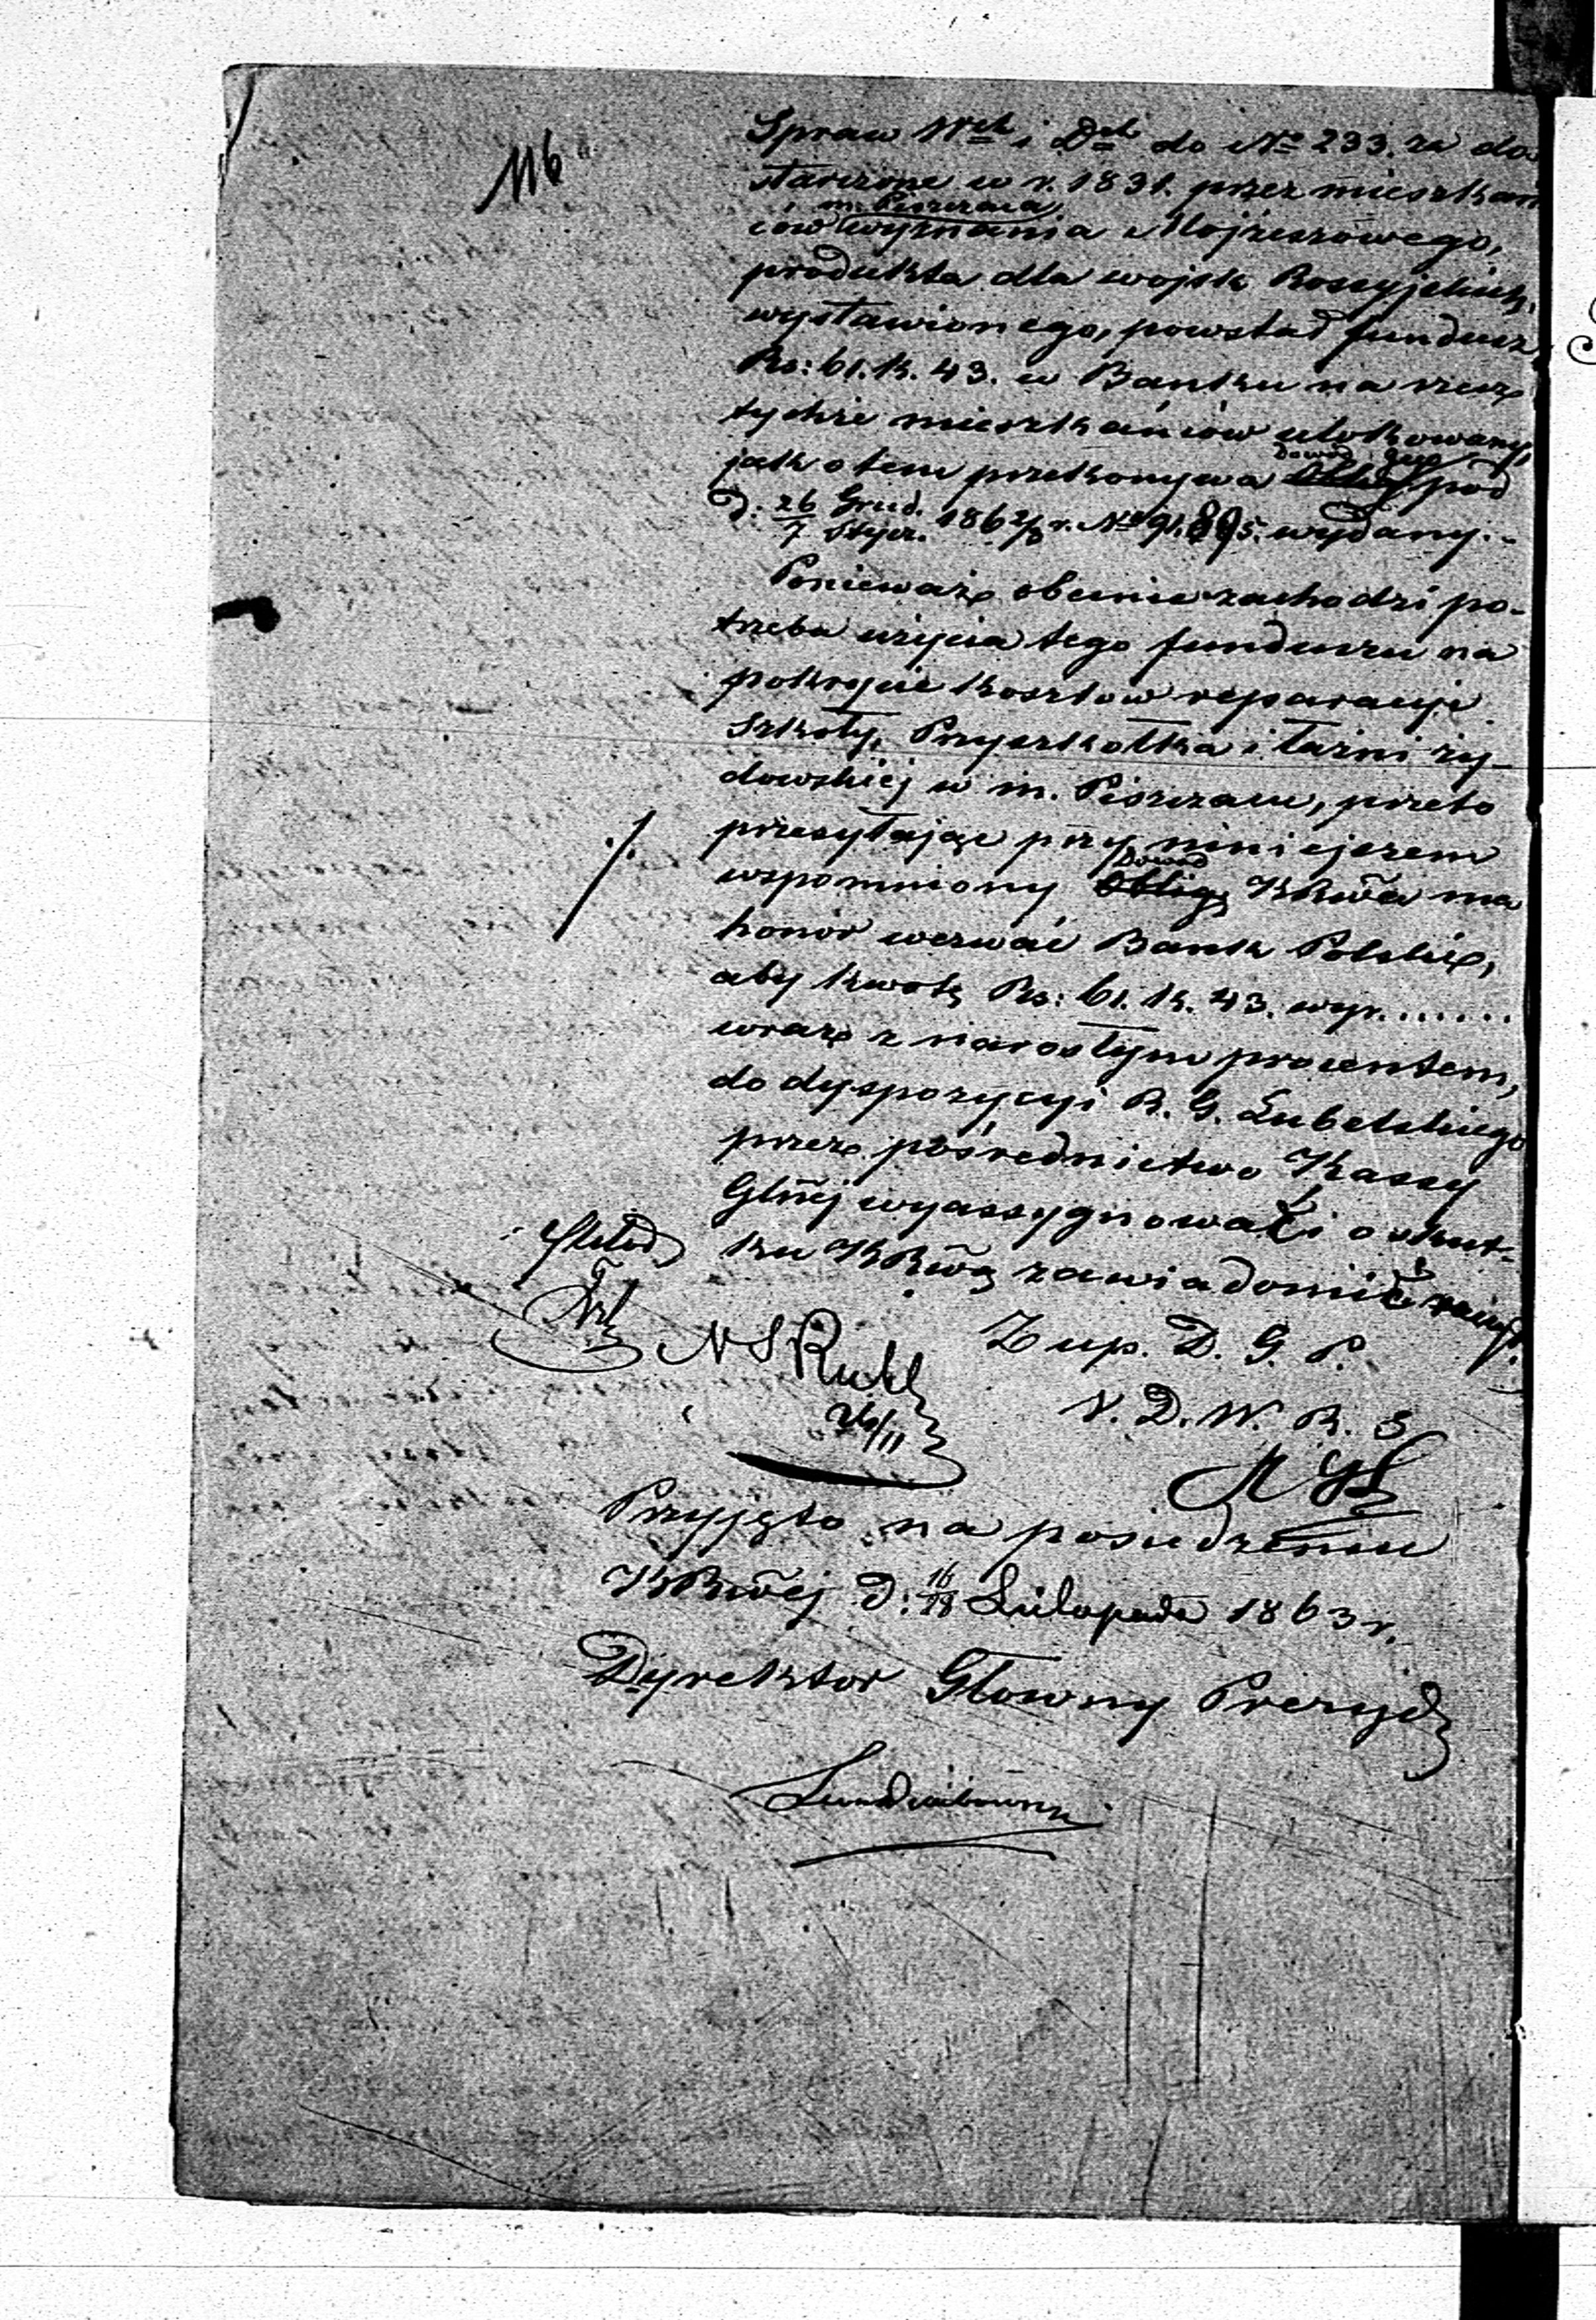 116
Spraw Wch i Dch do No 233. za do
starczone w r. 1831. przez mieszkań
m. Piszczaca
ców wyznania Mojżeszowego,
produkta dla wojsk Rossyjskich
wystawionego, powstał fundusz
Rs: 61. k. 43. w Banku na rzecz
tychże mieszkańców ulokowany,
Dowód jego
jak o tem przekonywa Oblig pod
d: 26 Grud. / 7 Stycz. 1862/3 r. No 91.895. wydany.-
Ponieważ obecnie zachodzi po-
trzeba użycia tego funduszu na
pokrycie kosztów reparacyi
Szkoły, Przyszkołka i łaźni ży-
dowskiej w m. Piszczacu, przeto
przesyłając przy niniejszem
Dowód
wspomniony Oblig, KRwa ma
honor wezwać Bank Polski,
aby kwotę Rs: 61. k. 43. wyr. ......
wraz z narosłym procentem,
do dyspozycyi R. G. Lubelskiego
przez pośrednictwo Kassy
Głnej wyassygnował i o skut-
ku KRwą zawiadomić
Z up. D. G. P.
V. D. W. R. S
26/11
Przyjęto na posiedzeniu
KRwej d: 16/28 Listopada 1863 r.
Dyrektor Główny Prezyd